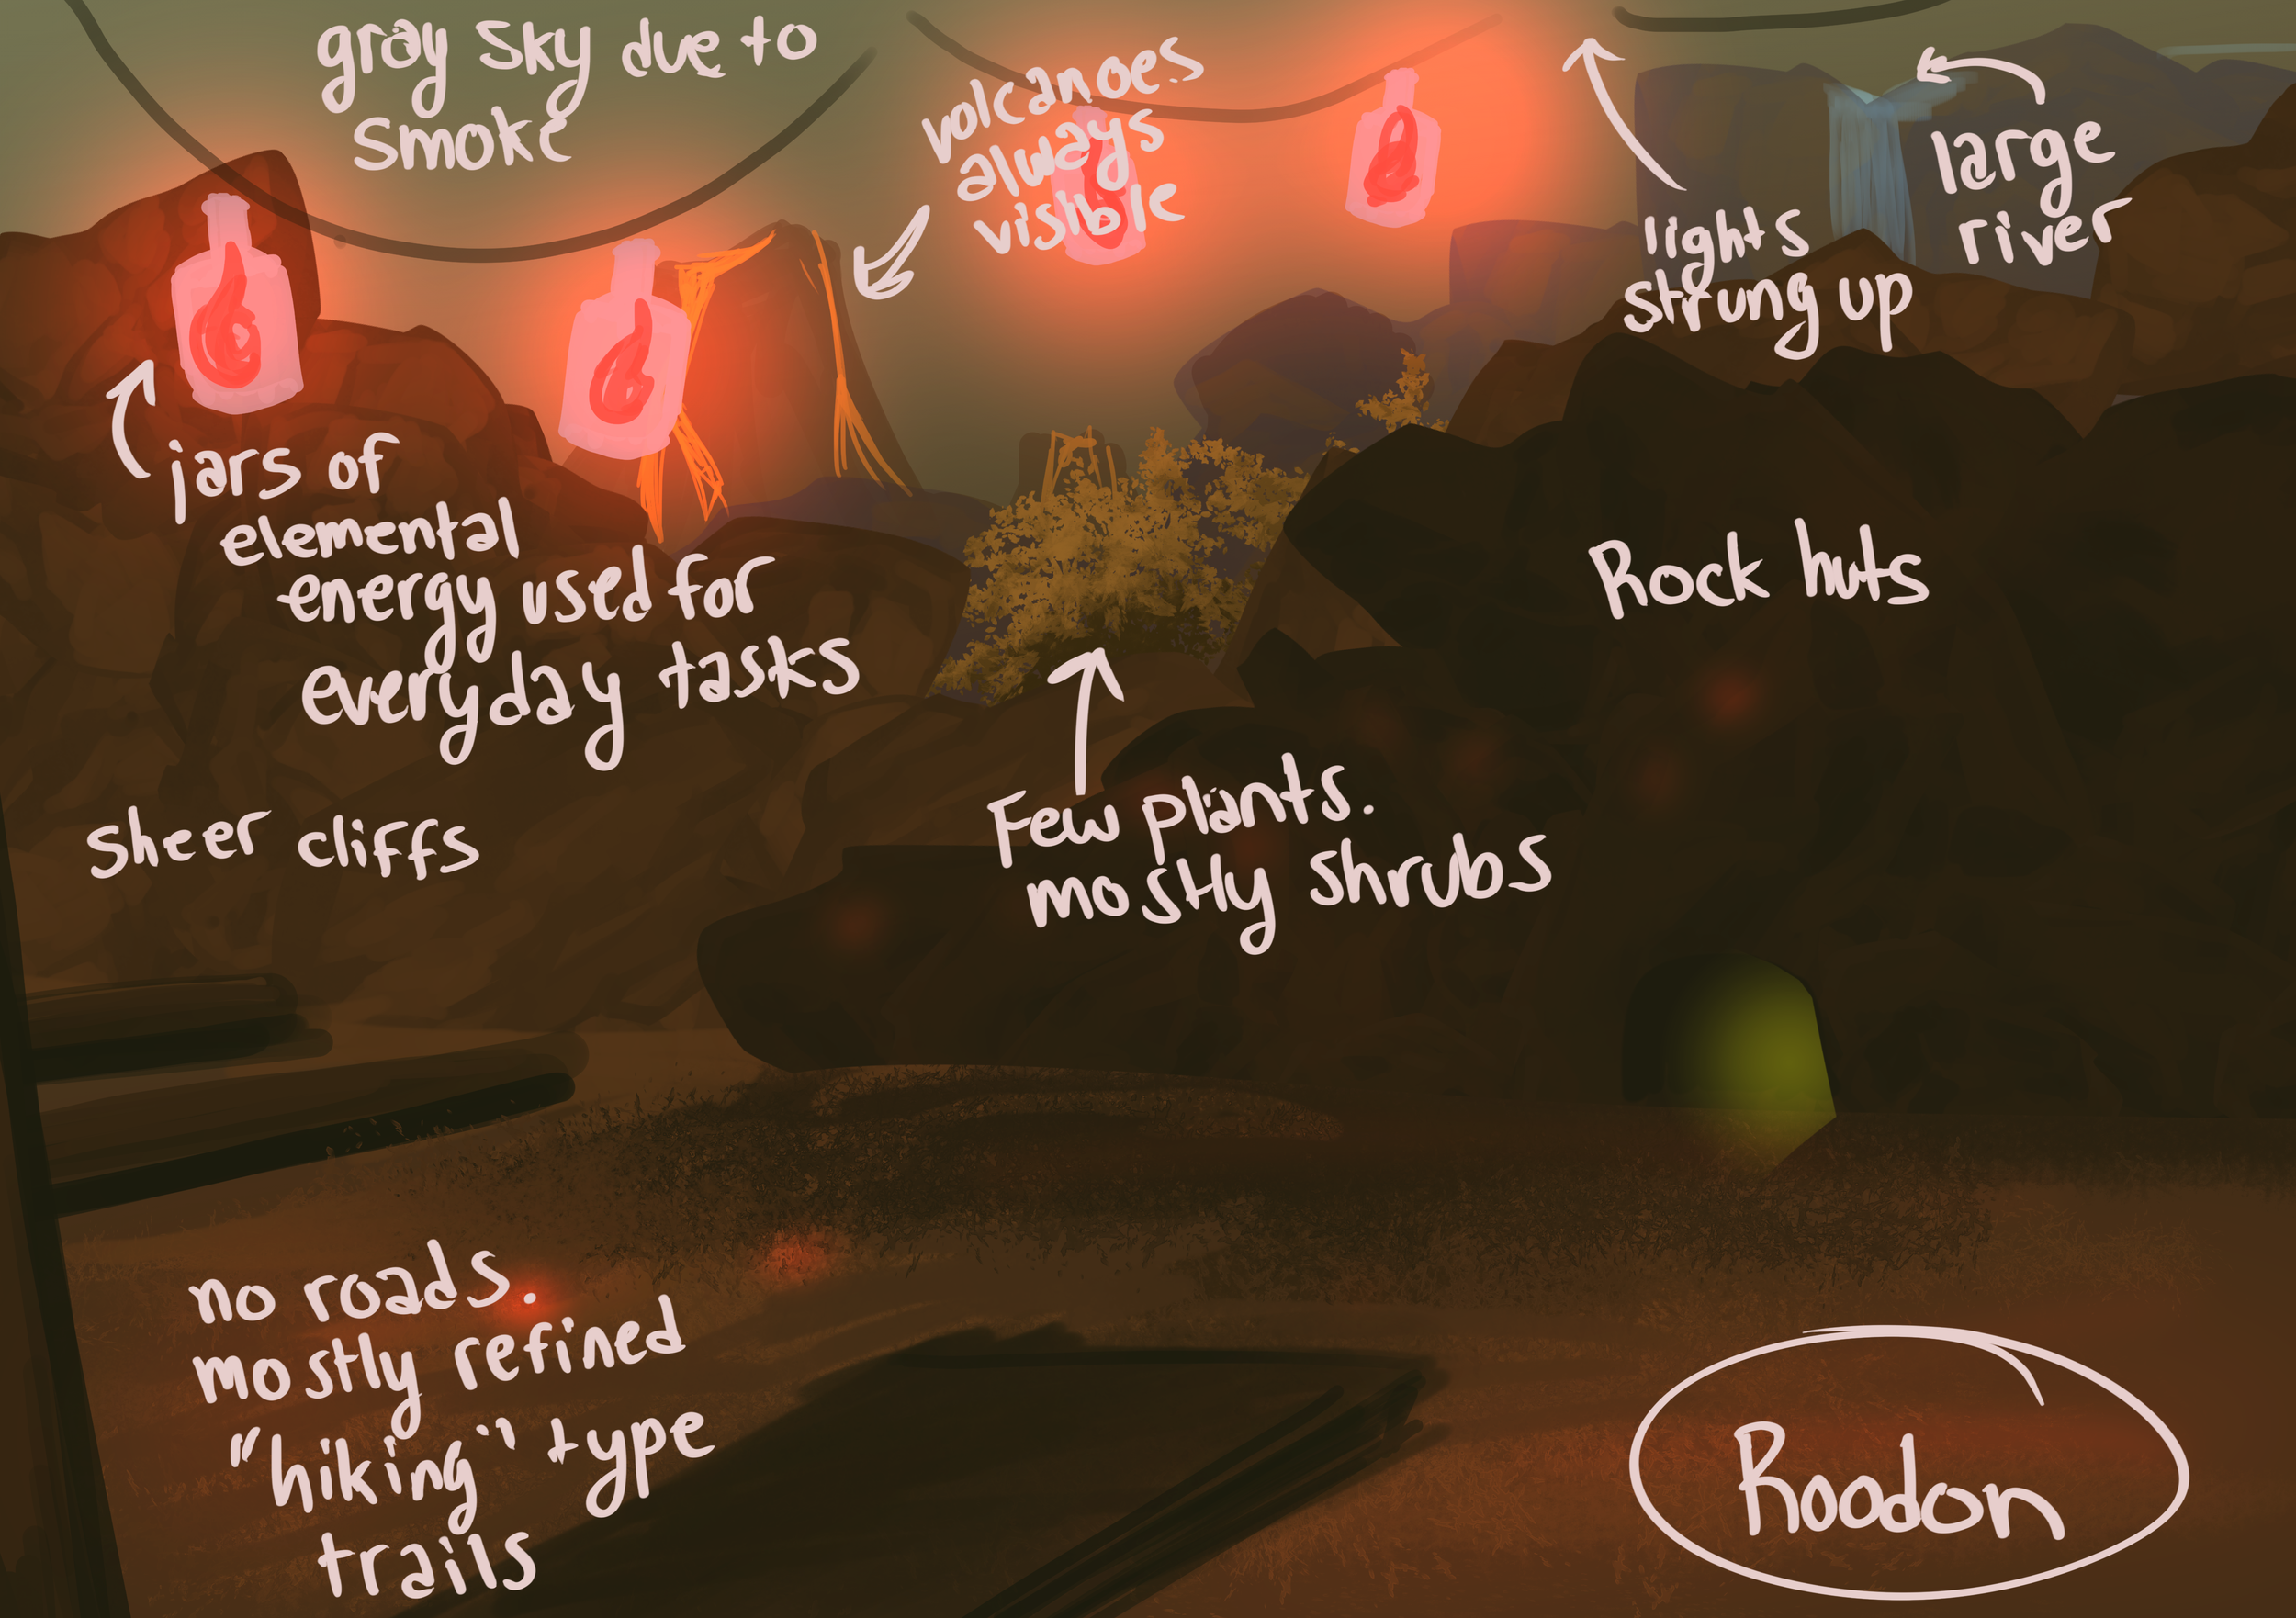 gray sky due to
smoke
volcanoes
always
visible
large
river
lights
strung up
jars of
elemental
energy used for
everyday tasks
Rock huts
sheer cliffs
Few plants.
mostly shrubs
no roads.
mostly refined
"hiking" type
trails
Roodon